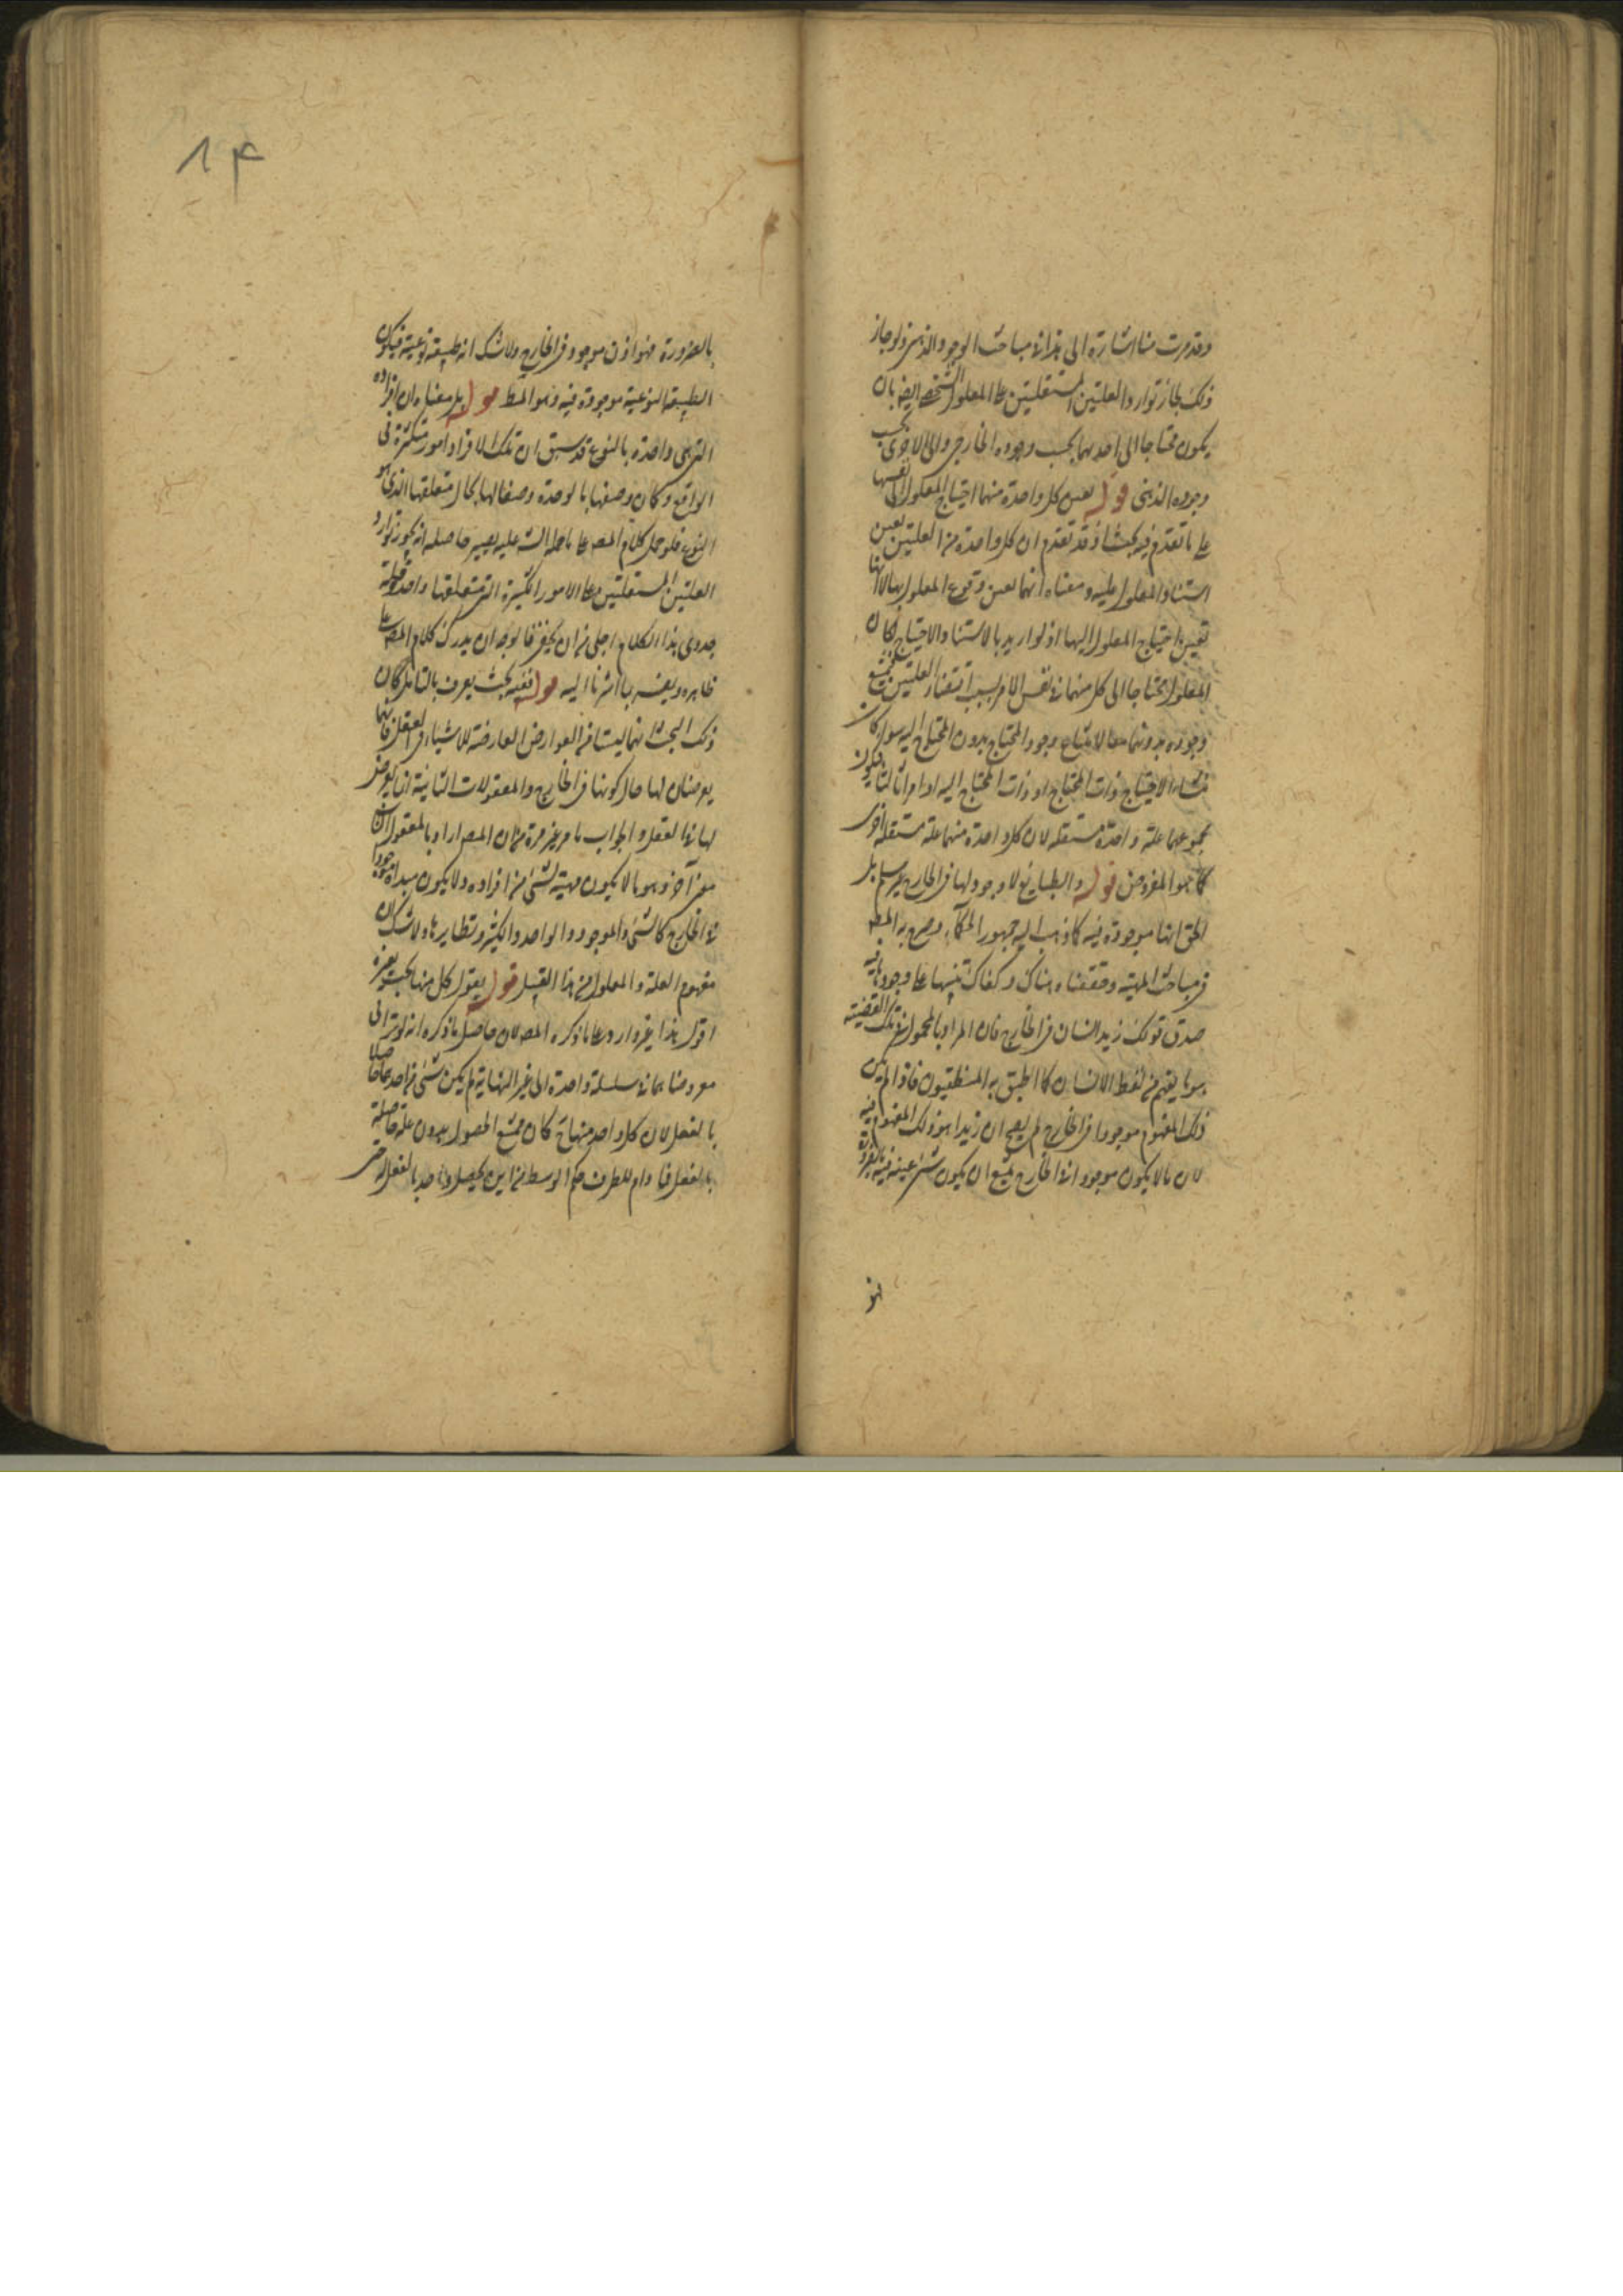 وقد مرت منا اشارة الى هذا فى مباحث الوجود الذهنى ولو جاز
ذلك لجاز توارد العلتين المستقلتين على المعلول الشخصى ايضا بان
يكون محتاجا الى احديهما بحسب وجوده الخارجى والى الاخرى بحسب
وجوده الذهنى قوله يعين كل واحدة منهما احتياج المعلول الى نفسها
على ما تقدم فيه بحث اذ قد تقدم ان كل واحدة من العلتين يعين
استناد المعلول عليه ومعناه انهما يعين وقوع المعلول بها لا انها
تعين احتياج المعلول اليها اذ لو اريد بالاستناد الاحتياج لكان
المعلول محتاجا الى كل منهما فى نفس الامر بسبب اقتضاء العلتين فيمتنع
وجوده بدونهما معا لامتناع وجود المحتاج بدون المحتاج اليه سواء كان
منشاء الاحتياج ذات المحتاج او ذات المحتاج اليه او امرا ثالثا فيكون
مجموعهما علة واحدة مستقلة لان كل واحدة منهما علة مستقلة اخرى
كما هو المفروض قوله والطبايع لا وجود لها فى الخارج غير مسلم بل
الحق انها موجودة فيه كما ذهب اليه جمهور الحكماء وصرح به المصـ
فى مباحث المهية وحققناه هناك وكفاك تنبيها على وجودها فيه
صدق قولك زيد انسان فى الخارج فان المراد بالمحمول فى تلك القضية
هو ما يفهم من لفظ الانسان كما اطبق به المنطقيون فاذا لم يكن
ذلك المفهوم موجودا فى الخارج لم يصح ان زيدا هو ذلك المفهوم فيه
لان ما لا يكون موجودا فى الخارج يمتنع ان يكون شئ عينه فيه بالضرورة
فهو
١٤
بالضرورة فهو اذن موجود فى الخارج ولا شك انه طبيعة نوعية فيكون
الطبيعة النوعية موجودة فيه وهو المط قوله بل معناه ان افراده
التى هى واحدة بالنوع قد سبق ان تلك الافراد امور متكثرة فى
الواقع وكان وصفها بالوحدة وصفا لها بحال متعلقها الذى هو
النوع فلو حمل كلام المصـ على ما حمله الشـ عليه يصير حاصله انه يجوز توارد
العلتين المستقلتين على الامور الكثيرة التى متعلقها واحد وقلة
جدوى هذا الكلام اجلى من ان يخفى فالوجه ان يدرك كلام المصـ على
ظاهره ويفسر بما اشرنا اليه قوله ففيه بحث يعرف بالتامل كان
ذلك البحث انهما ليستا من العوارض العارضة للاشياء فى العقل فانهما
يعرضان لها حال كونها فى الخارج والمعقولات الثانية انما يعرض
لها فى العقل والجواب ما مر غير مرة من ان المصـ اراد بالمعقول الثانى
معنى آخر وهو ما لا يكون مهية لشئ من افراده ولا يكون مبداه موجودا
فى الخارج كالشئ والموجود والواحد والكثير ونظايرها ولا شك ان
مفهوم العلة والمعلول من هذا القبيل قوله يقول كل منها بحث وغيره
اقول هذا غير وارد على ما ذكره المصـ لان حاصل ما ذكره انه لو تراقى
معروضاهما فى سلسلة واحدة الى غير النهاية لم يكن شئ من احدها حاصلا
بالفعل لان كل واحد منها ح كان ممتنع الحصول بدون علة حاصلة
بالفعل فما دام للطرف حكم الوسط من اين يحصل واحد بالفعل حتى